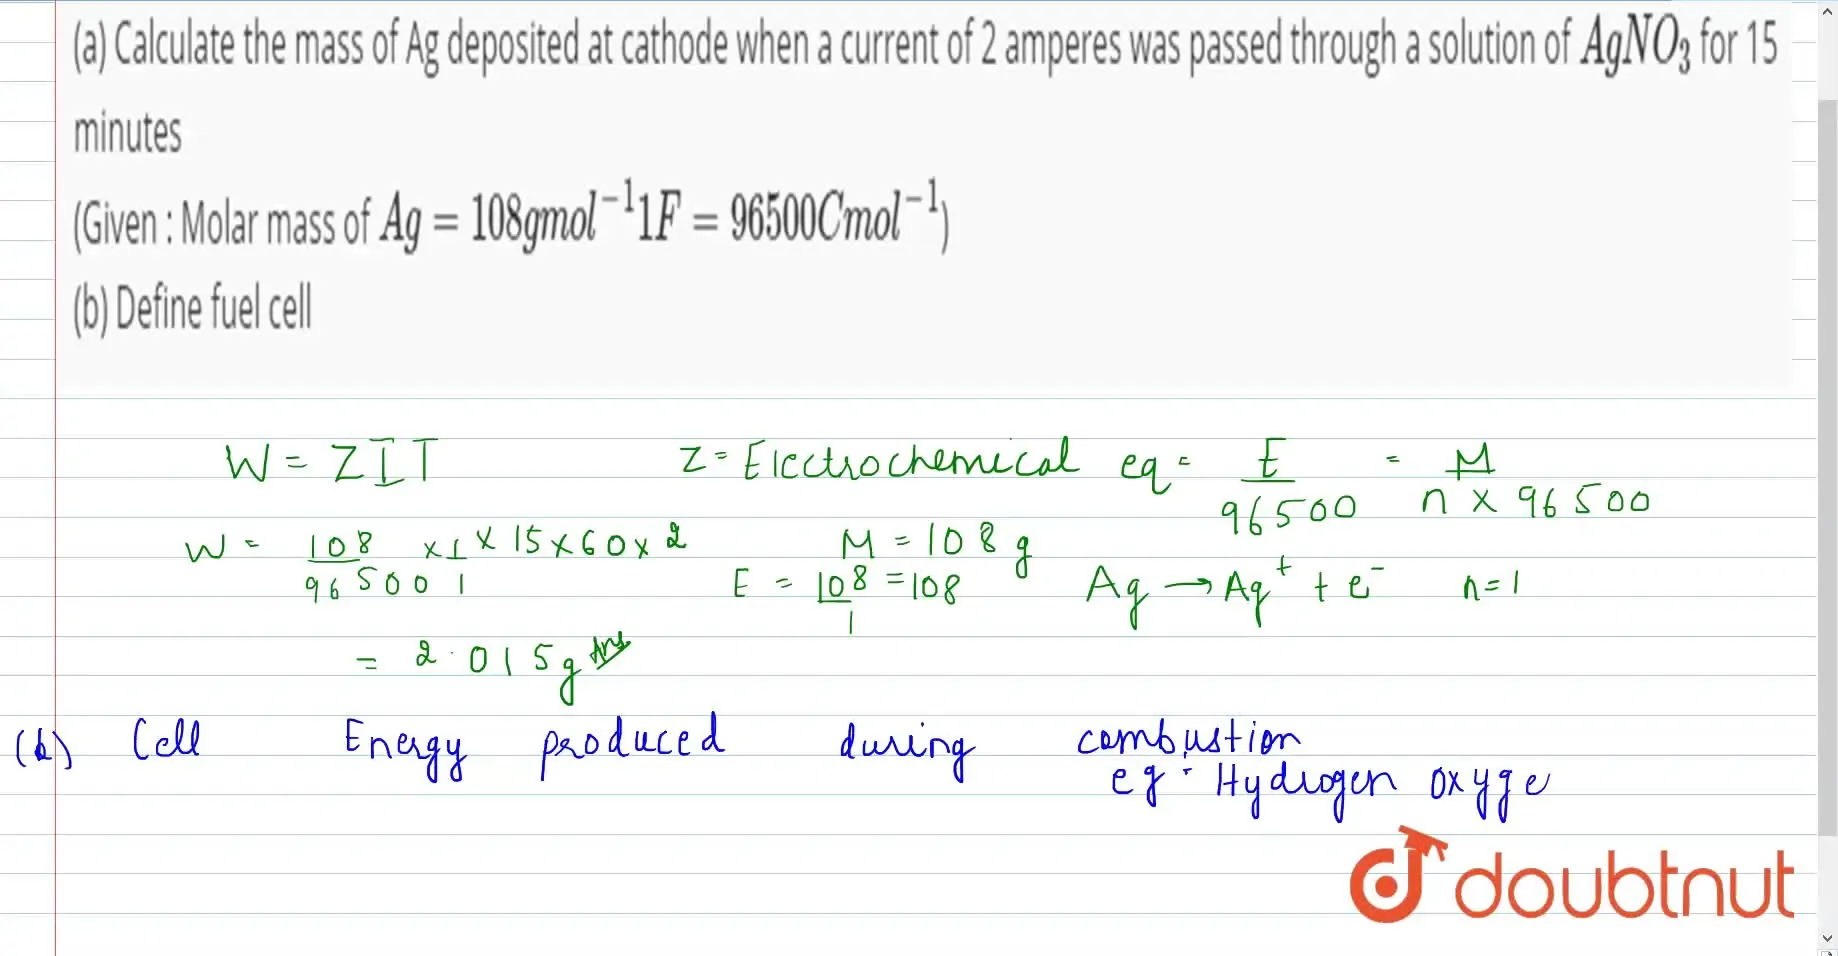 (a) Calculate the mass of Ag deposited at cathode when a current of 2 amperes was passed through a solution of AgNO₃ for 15
minutes
(Given : Molar mass of Ag = 108gmol⁻¹1F = 96500Cmol⁻¹)
(b) Define fuel cell
W = ZIT   Z = Electrochemical eq = E/96500 = M/(n × 96500)
W = 108/96500 × 1/1 × 15 × 60 × 2   M = 108 g
E = 108/1 = 108   Ag → Ag⁺ + e⁻   n = 1
= 2.015g Ans
(b) Cell Energy produced during combustion
eg: Hydrogen oxyge
doubtnut